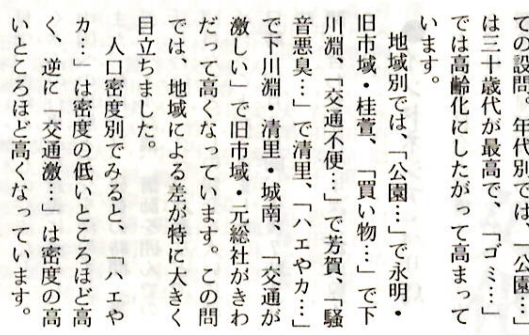 ての設問。年代別では、「公園…」
は三十歳代が最高で、「ゴミ…」
では高齢化にしたがって高まって
います。
　地域別では、「公園…」で永明・
旧市域・桂萱、「買い物…」で下
川淵、「交通不便…」で芳賀、「騒
音悪臭…」で清里、「ハエやカ…」
で下川淵・清里・城南、「交通が
激しい」で旧市域・元総社がきわ
だって高くなっています。この問
では、地域による差が特に大きく
目立ちました。
　人口密度別でみると、「ハエや
カ…」は密度の低いところほど高
く、逆に「交通激…」は密度の高
いところほど高くなっています。